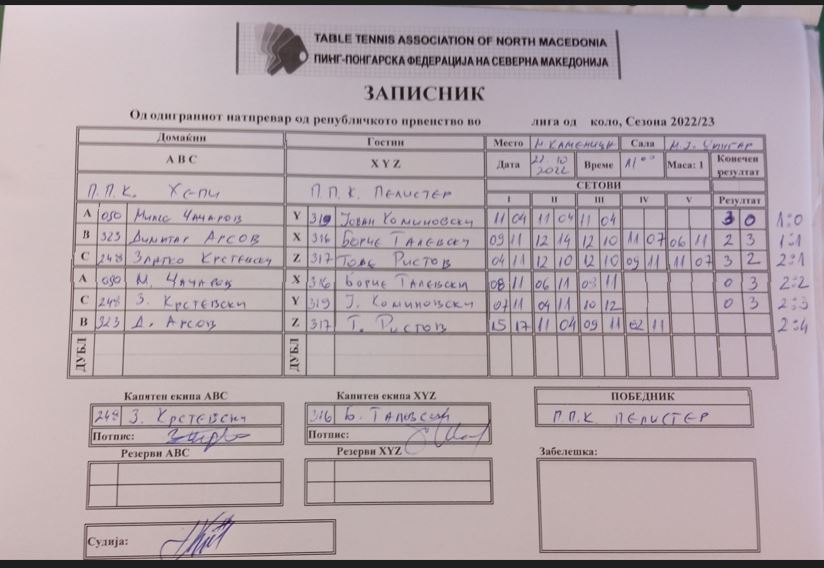 TABLE TENNIS ASSOCIATION OF NORTH MACEDONIA
ПИНГ-ПОНГАРСКА ФЕДЕРАЦИЈА НА СЕВЕРНА МАКЕДОНИЈА
ЗАПИСНИК
Од одиграниот натпревар од републичкото првенство во лига од коло, Сезона 2022/23
Домаќин Гостин Место М КАМЕНИЦА Сала
A B C X Y Z Дата 22.10 2022 Време 11°° Маса: 1 Конечен резултат
П.П.К. ХЕПИ П.П.К. ПЕЛИСТЕР СЕТОВИ
I II III IV V Резултат
A 050 Чачаров Y 319 Јован Коминовски 11 04 11 04 11 04 3 0 1:0
B 323 Димитар Арсов X 316 Борче Талевски 09 11 12 14 12 10 11 07 06 11 2 3 1:1
C 248 Златко Крстевски Z 317 Ристов 04 11 12 10 12 10 09 11 11 07 3 2 2:1
A 050 М. Чачаров X 316 Борче Талевски 08 11 06 11 11 0 3 2:2
C 248 З. Крстевски Y 319 Ј. Коминовски 07 11 09 11 10 12 0 3 2:3
B 323 Д. Арсов Z 317 Т. Ристов 15 17 11 04 09 11 02 11 2:4
ДУБЛ ДУБЛ
Капитен екипа ABC Капитен екипа XYZ ПОБЕДНИК
248 З. Крстевски 316 Б. Талевски П.П.К ПЕЛИСТЕР
Потпис: Потпис:
Резерви ABC Резерви XYZ Забелешка:
Судија: